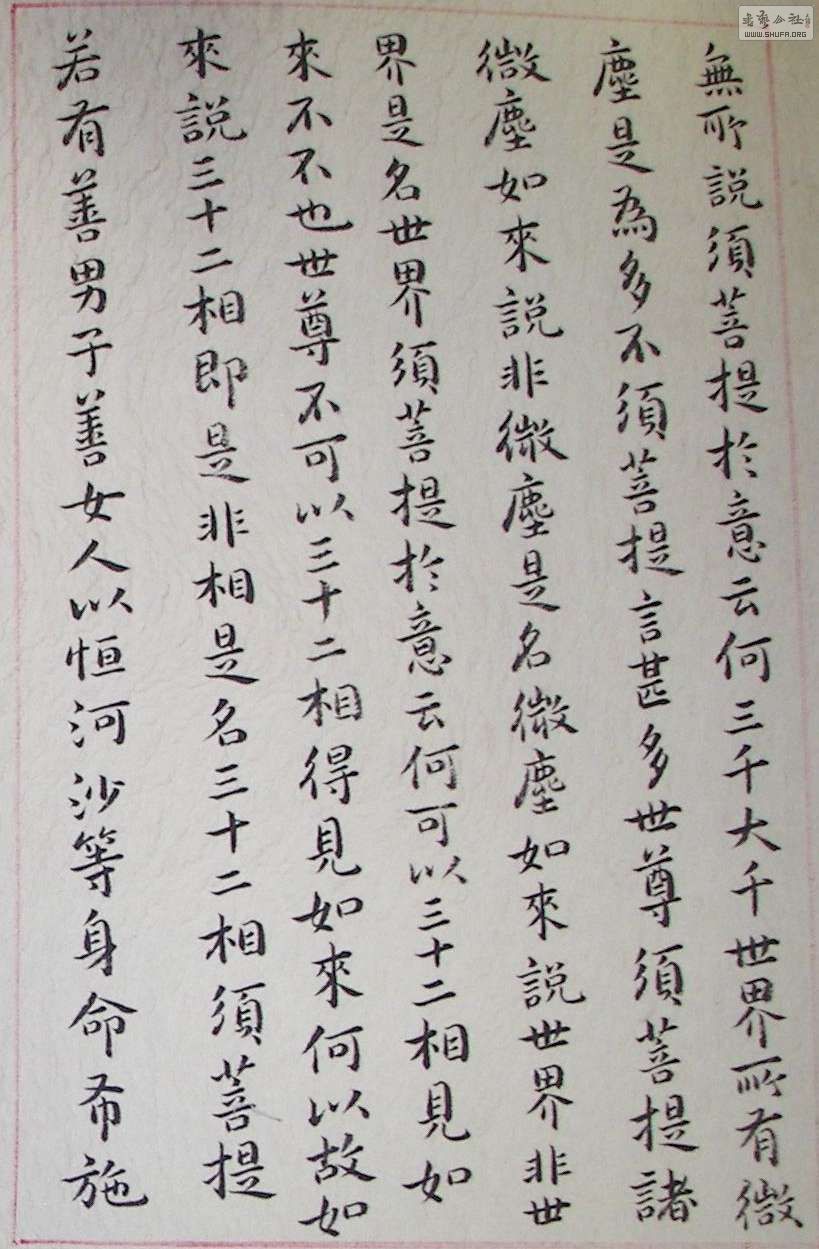 無所説須菩提於意云何三千大千世界所有微
塵是為多不須菩提言甚多世尊須菩提諸
微塵如來説非微塵是名微塵如來説世界非世
界是名世界須菩提於意云何可以三十二相見如
來不不也世尊不可以三十二相得見如來何以故如
來説三十二相即是非相是名三十二相須菩提
若有善男子善女人以恒河沙等身命布施
WWW.SHUFA.ORG